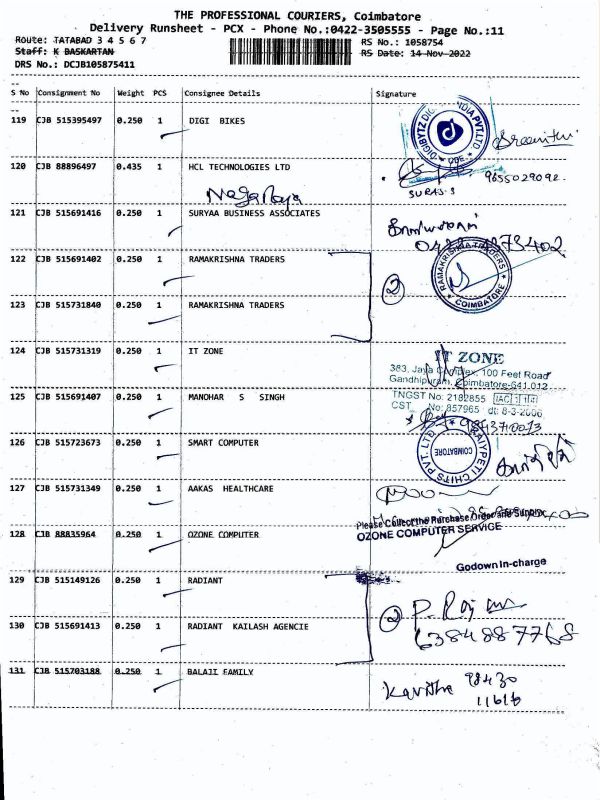 THE PROFESSIONAL COURIERS, Coimbatore
Delivery Runsheet - PCX - Phone No.:0422-3505555 - Page No.:11
Route: TATABAD 3 4 5 6 7
RS No.: 1058754
Staff: K BASKARTAN
RS Date: 14-Nov-2022
DRS No.: DCJB105875411
S No Consignment No Weight PCS Consignee Details Signature
119 CJB 515395497 0.250 1 DIGI BIKES
120 CJB 88896497 0.435 1 HCL TECHNOLOGIES LTD
9655029092
SURAJ.S
Nagaraja
121 CJB 515691416 0.250 1 SURYAA BUSINESS ASSOCIATES
122 CJB 515691402 0.250 1 RAMAKRISHNA TRADERS
RAMAKRISHNA TRADERS
COIMBATORE
2
123 CJB 515731840 0.250 1 RAMAKRISHNA TRADERS
124 CJB 515731319 0.250 1 IT ZONE
IT ZONE
383, Jaya Complex, 100 Feet Road
Gandhipuram, Coimbatore-641 012
125 CJB 515691407 0.250 1 MANOHAR S SINGH
TNGST No: 2182855
CST No: 857965 dt: 8-3-2006
126 CJB 515723673 0.250 1 SMART COMPUTER
CHITS PVT. LTD
COIMBATORE
127 CJB 515731349 0.250 1 AAKAS HEALTHCARE
128 CJB 88835964 0.250 1 OZONE COMPUTER
Please Collect the Purchase Order and
OZONE COMPUTER SERVICE
Godown In-charge
129 CJB 515149126 0.250 1 RADIANT
2 P. Rajan
130 CJB 515691413 0.250 1 RADIANT KAILASH AGENCIE
6384887768
131 CJB 515703188 0.250 1 BALAJI FAMILY
Kavitha 98430
11616